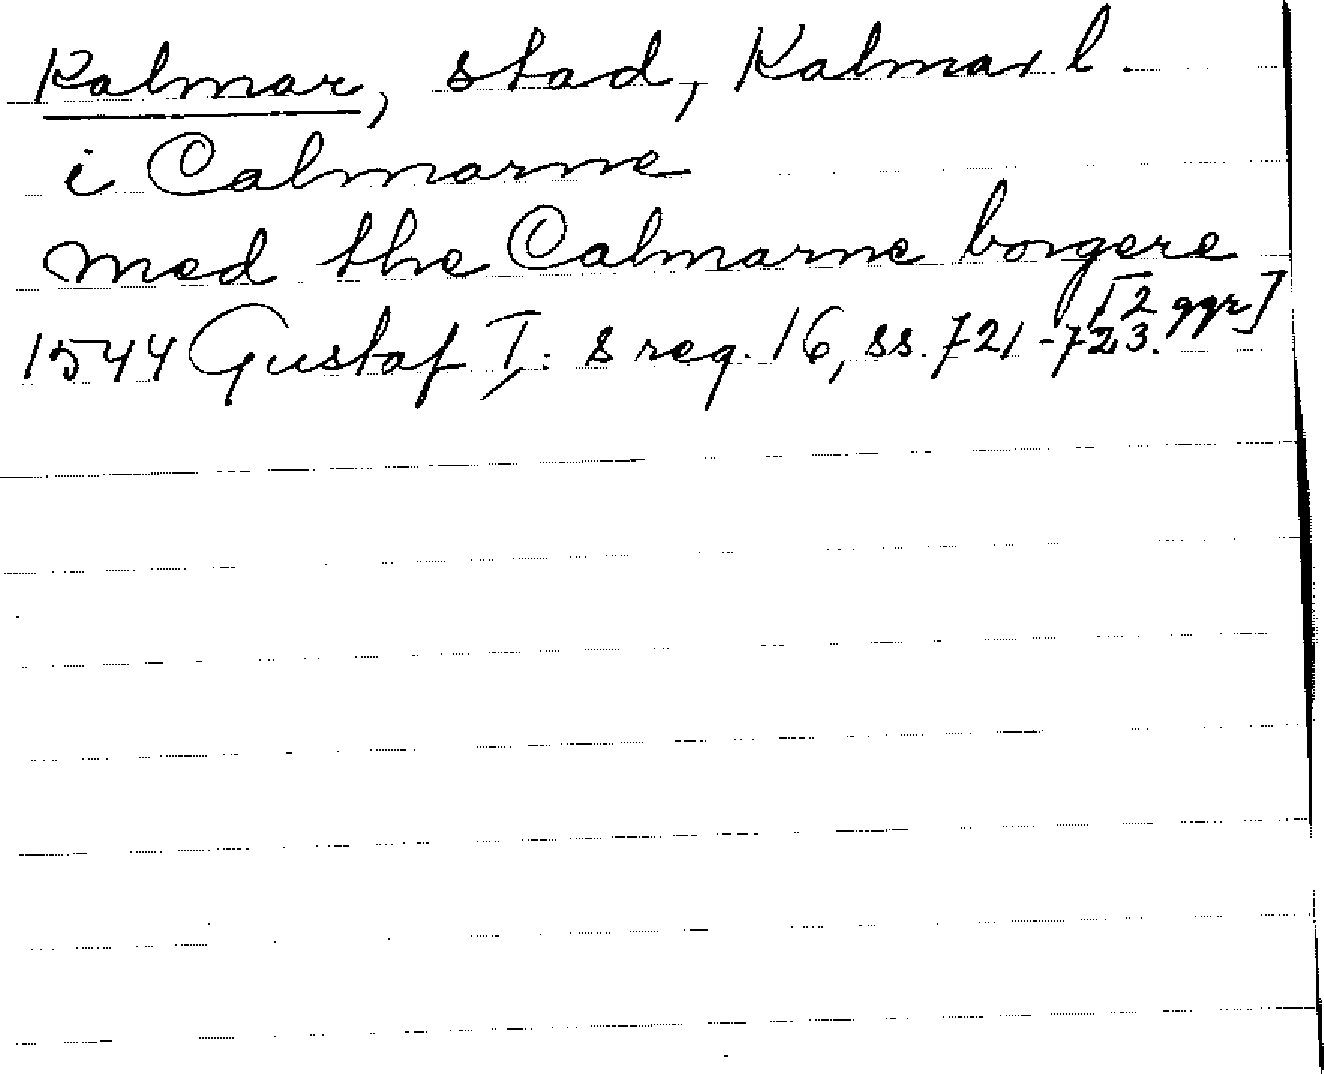 Kalmar, stad, Kalmar l.
i Calmarne
med the Calmarne borgere
[2 ggr]
1544 Gustaf I:s reg. 16, ss. 721-723.